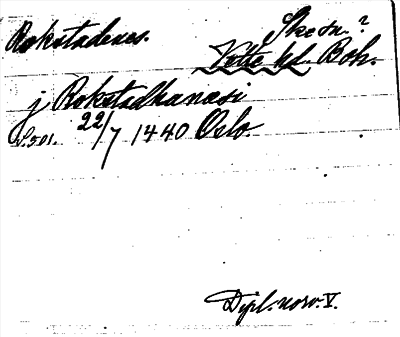 Rokstadenes. Skeda?
Vette hd. Boh.
j Rokstadhanæsi
S. 501. 22/7 1440 Oslo.
Dipl. norv. V.